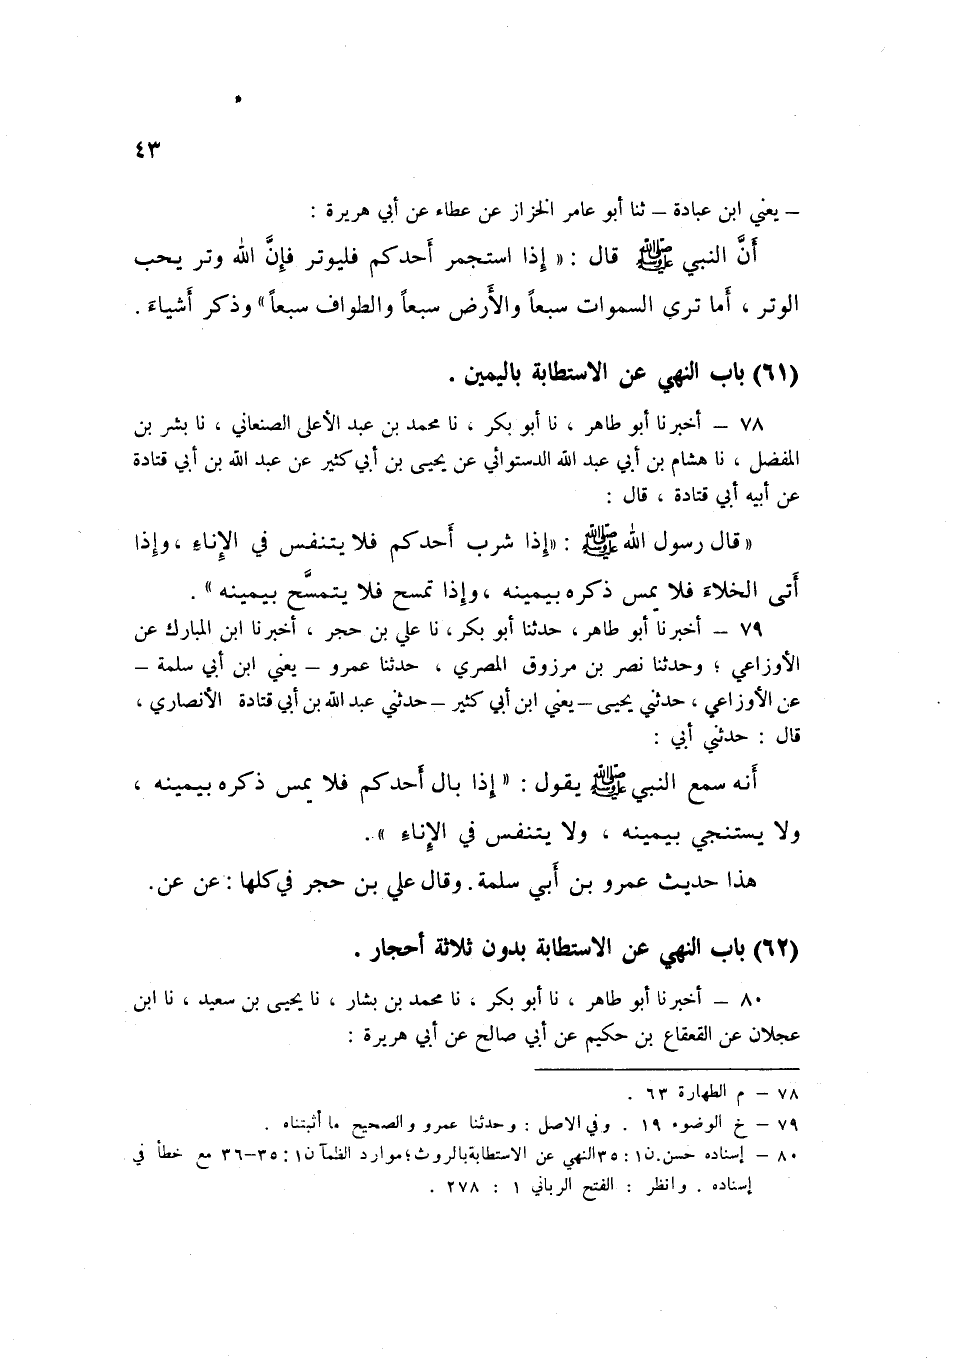 ٤٣
ـ يعني ابن عبادة ـ ثنا أبو عامر الخزاز عن عطاء عن أبي هريرة :
أَنَّ النبي ﷺ قال : « إذا استجمر أَحدكم فليوتر فإنَّ الله وتر يحب
الوتر ، أَما ترى السموات سبعاً والأَرض سبعاً والطواف سبعاً» وذكر أَشياءَ .
(٦١) باب النهي عن الاستطابة باليمين .
٧٨ ـ أخبرنا أبو طاهر ، نا أبو بكر ، نا محمد بن عبد الأعلى الصنعاني ، نا بشر بن
المفضل ، نا هشام بن أبي عبد الله الدستوائي عن يحيى بن أبي كثير عن عبد الله بن أبي قتادة
عن أبيه أبي قتادة ، قال :
« قال رسول الله ﷺ : «إذا شرب أَحدكم فلا يتنفس في الإناءِ ، وإذا
أَتى الخلاءَ فلا يمس ذكره بيمينه ، وإذا تمسح فلا يتمسَّح بيمينه » .
٧٩ ـ أخبرنا أبو طاهر ، حدثنا أبو بكر ، نا علي بن حجر ، أخبرنا ابن المبارك عن
الأوزاعي ؛ وحدثنا نصر بن مرزوق المصري ، حدثنا عمرو ـ يعني ابن أبي سلمة ـ
عن الأوزاعي ، حدثني يحيى ـ يعني ابن أبي كثير ـ حدثني عبد الله بن أبي قتادة الأنصاري ،
قال : حدثني أبي :
أَنه سمع النبي ﷺ يقول : « إذا بال أَحدكم فلا يمس ذكره بيمينه ،
ولا يستنجي بيمينه ، ولا يتنفس في الإناءِ » .
هذا حديث عمرو بن أَبي سلمة . وقال علي بن حجر في كلها : عن عن .
(٦٢) باب النهي عن الاستطابة بدون ثلاثة أحجار .
٨٠ ـ أخبرنا أبو طاهر ، نا أبو بكر ، نا محمد بن بشار ، نا يحيى بن سعيد ، نا ابن
عجلان عن القعقاع بن حكيم عن أبي صالح عن أبي هريرة :
٧٨ ـ م الطهارة ٦٣ .
٧٩ ـ خ الوضوء ١٩ . وفي الاصل : وحدثنا عمرو والصحيح ما أثبتناه .
٨٠ ـ إسناده حسن.ن١ : ٣٥النهي عن الاستطابةبالروث؛موارد الظمآن١ : ٣٥-٣٦ مع خطأ في
إسناده . وانظر : الفتح الرباني ١ : ٢٧٨ .